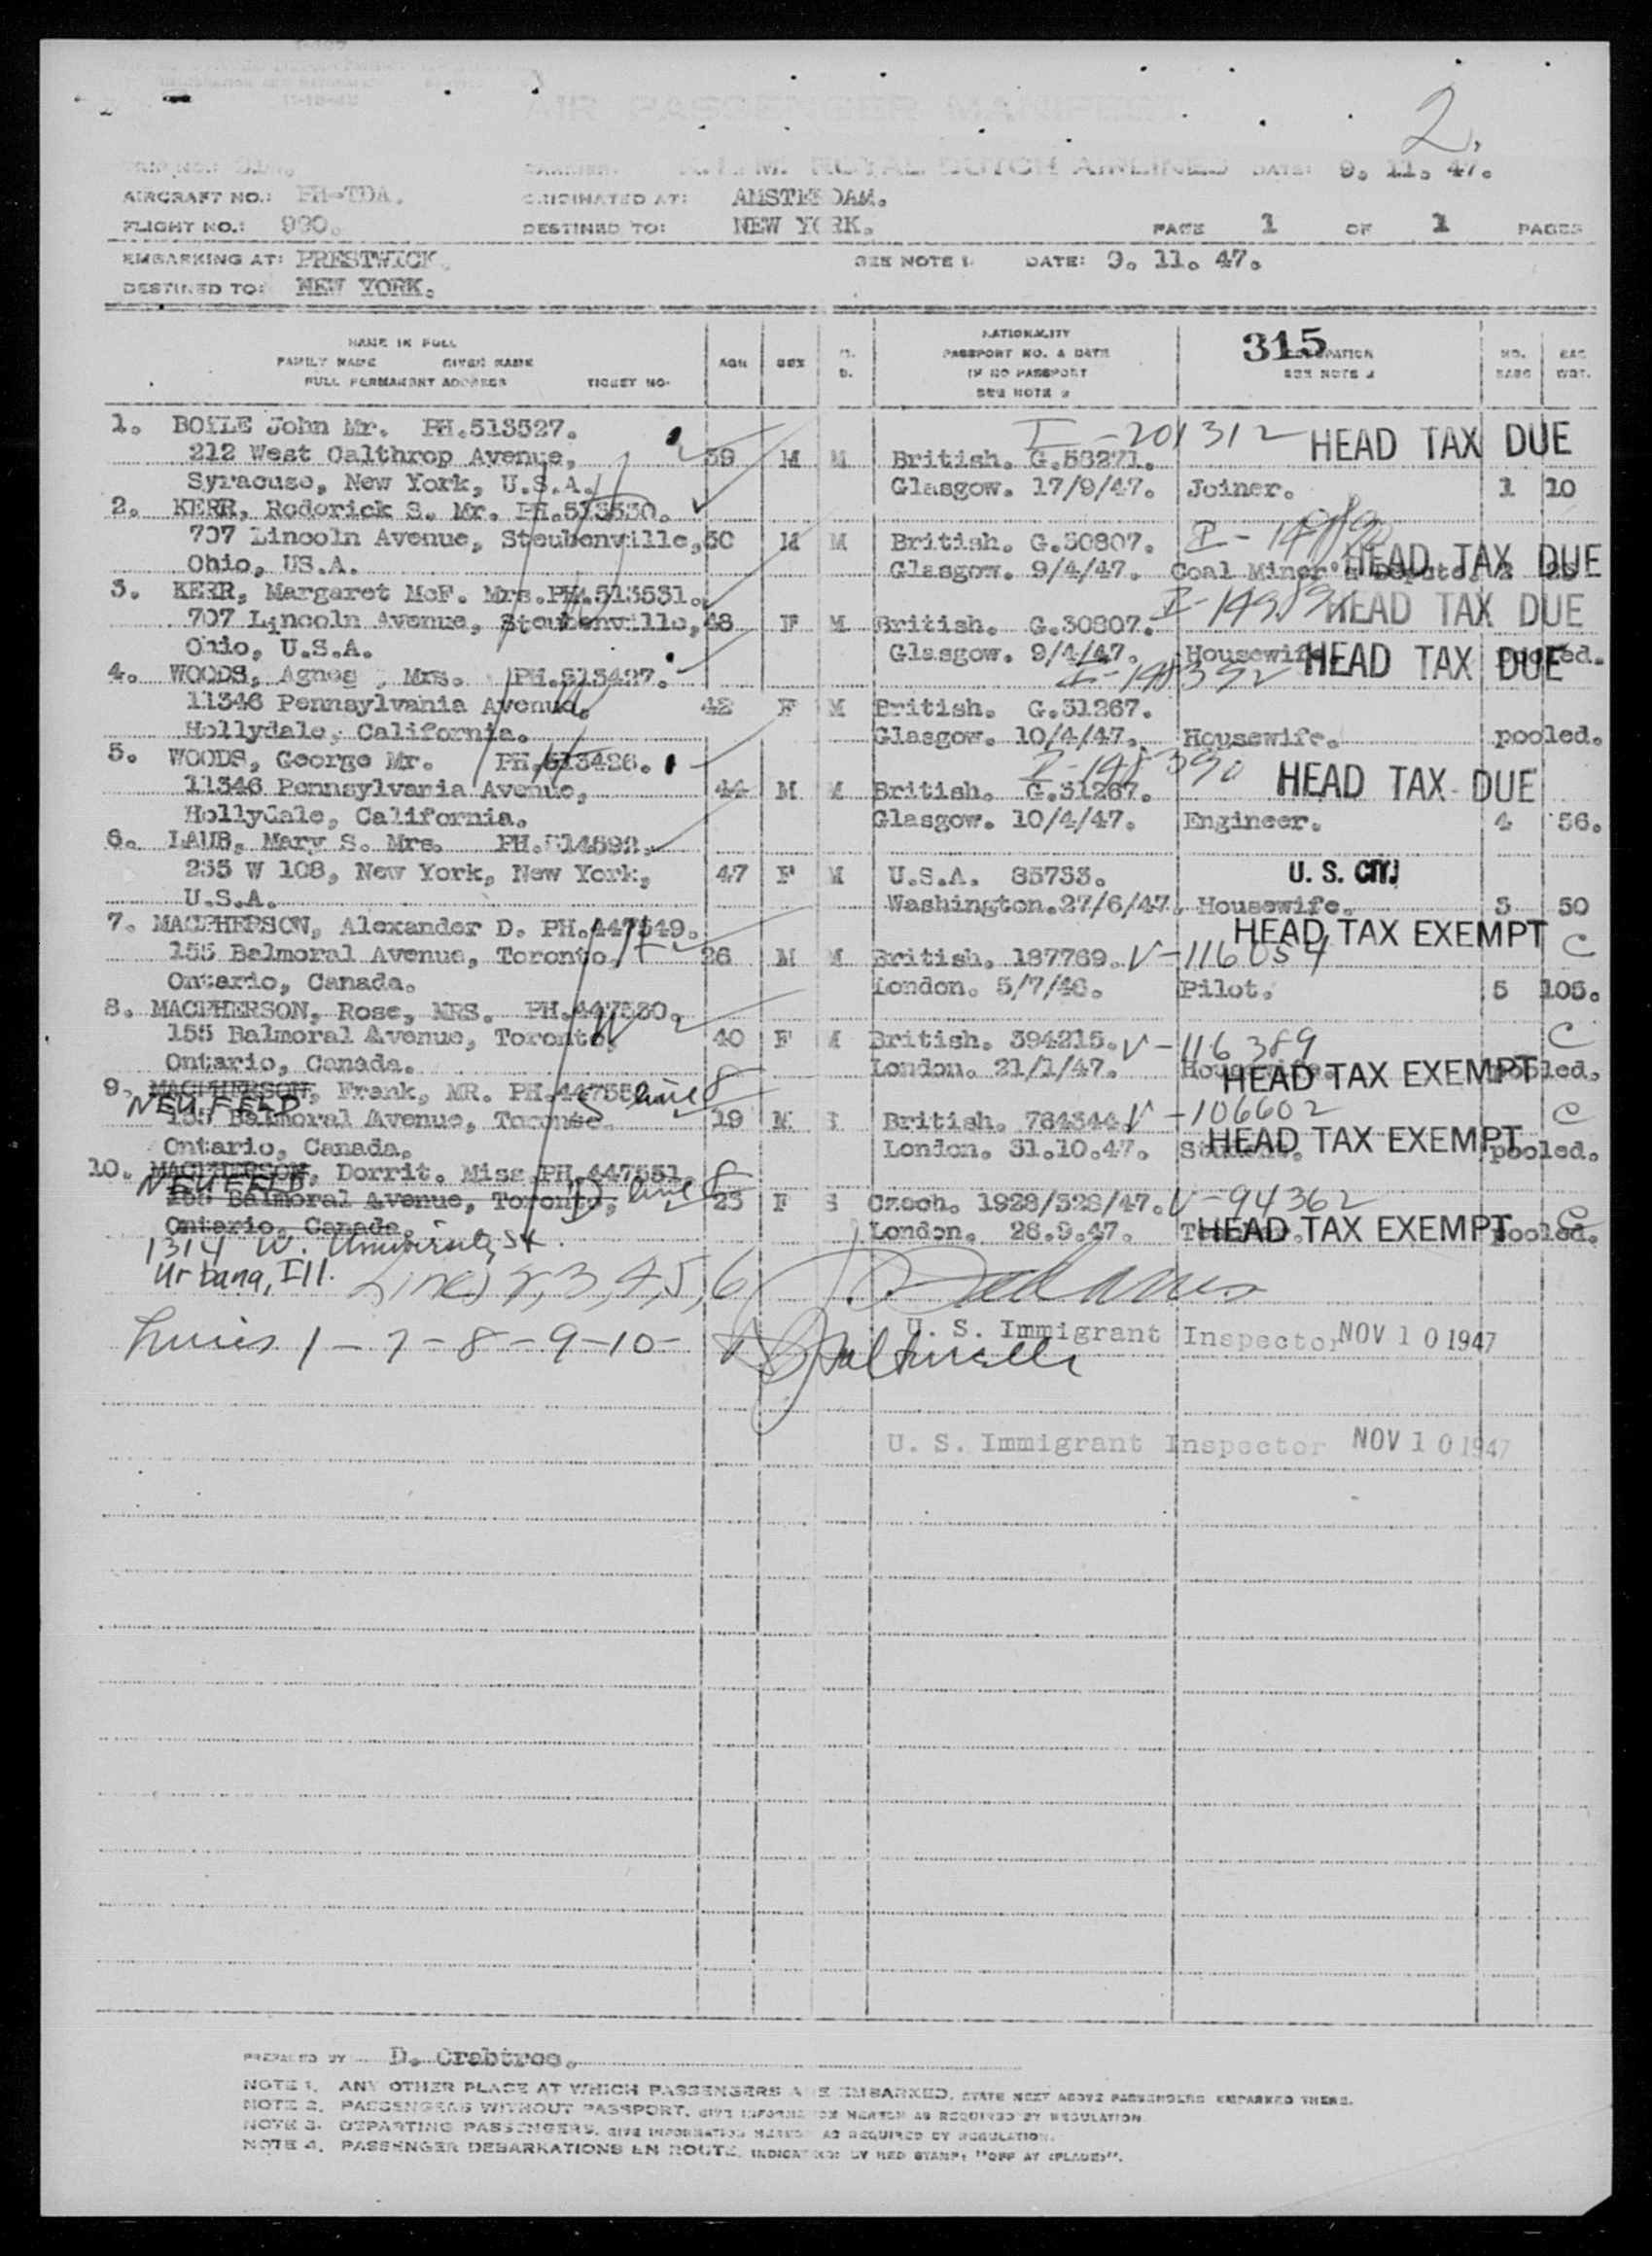 2.
AIR PASSENGER MANIFEST
K.L.M. ROYAL DUTCH AIRLINES DATE: 9. 11. 47.
AIRCRAFT NO.: PH-TDA. ORIGINATED AT: AMSTERDAM.
FLIGHT NO.: 990. DESTINED TO: NEW YORK. PAGE 1 OF 1 PAGES
EMBARKING AT: PRESTWICK. SEE NOTE 1. DATE: 9. 11. 47.
DESTINED TO: NEW YORK.
315
NAME IN FULL NATIONALITY
FAMILY NAME GIVEN NAME AGE SEX PASSPORT NO. & DATE OCCUPATION NO.
FULL PERMANENT ADDRESS TICKET NO. IF NO PASSPORT SEE NOTE BAGS WGT.
SEE NOTE 2
1. BOYLE John Mr. PH.513527. I-201312 HEAD TAX DUE
212 West Calthrop Avenue, 39 M M British. G.53271.
Syracuse, New York, U.S.A. Glasgow. 17/9/47. Joiner. 1 10
2. KERR, Roderick S. Mr. PH.513530.
707 Lincoln Avenue, Steubenville, 50 M M British. G.30807. HEAD TAX DUE
Ohio, US.A. Glasgow. 9/4/47. Coal Miner's
3. KERR, Margaret McF. Mrs. PH.513531. HEAD TAX DUE
707 Lincoln Avenue, Steubenville, 48 F M British. G.30807.
Ohio, U.S.A. Glasgow. 9/4/47. Housewife. HEAD TAX DUE pooled.
4. WOODS, Agnes , Mrs. PH.513427. I-198392
11346 Pennsylvania Avenue, 42 F M British. G.31267.
Hollydale, California. Glasgow. 10/4/47. Housewife. pooled.
5. WOODS, George Mr. PH.513426. I-198390 HEAD TAX DUE
11346 Pennsylvania Avenue, 44 M M British. G.31267.
Hollydale, California. Glasgow. 10/4/47. Engineer. 4 56.
6. LAUB, Mary S. Mrs. PH.514692.
235 W 108, New York, New York, 47 F M U.S.A. 85733. U. S. CITZ
U.S.A. Washington. 27/6/47. Housewife. 3 50
7. MACPHERSON, Alexander D. PH.447549. HEAD TAX EXEMPT C
155 Balmoral Avenue, Toronto, 26 M M British. 187769. V-116054
Ontario, Canada. London. 5/7/46. Pilot. 5 105.
8. MACPHERSON, Rose, MRS. PH.447530.
155 Balmoral Avenue, Toronto, 40 F M British. 394215. V-116389 C
Ontario, Canada. London. 21/1/47. Housewife. HEAD TAX EXEMPT pooled.
9. MACPHERSON, Frank, MR. line 8
NEUFELD
155 Balmoral Avenue, Toronto. 19 M S British. 784344 V-106602 C
Ontario, Canada. London. 31.10.47. Student. HEAD TAX EXEMPT pooled.
10. MACPHERSON, Dorrit. Miss PH.447551. line 8
NEUFELD
155 Balmoral Avenue, Toronto, 23 F S Czech. 1928/328/47. V-94362 C
Ontario, Canada. London. 26.9.47. HEAD TAX EXEMPT pooled.
1314 W. University St.
Urbana, Ill. Lines 2, 3, 4, 5, 6
U. S. Immigrant Inspector NOV 10 1947
Lines 1-7-8-9-10-
U. S. Immigrant Inspector NOV 10 1947
PREPARED BY D. Crabtree.
NOTE 1. ANY OTHER PLACE AT WHICH PASSENGERS ARE EMBARKED, STATE NEXT ABOVE PASSENGERS EMBARKED THERE.
NOTE 2. PASSENGERS WITHOUT PASSPORT, GIVE INFORMATION HEREON AS REQUIRED BY REGULATION.
NOTE 3. DEPARTING PASSENGERS, GIVE INFORMATION HEREON AS REQUIRED BY REGULATION.
NOTE 4. PASSENGER DEBARKATIONS EN ROUTE, INDICATED BY RED STAMP: "OFF AT (PLACE)".